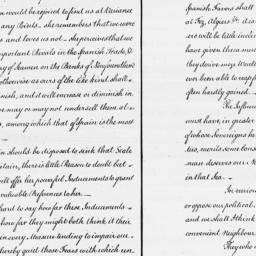 would be rejoiced to find us at Variance
any Rivals. she remembers that we were
and loves us not. she perceives that we
important Rivals in the Spanish Trade, &
of Seamen on the Banks of Newfoundland
otherwise as ours of the like kind shall
nish, and it will increase or diminish in
we may or may not undersell them at
, among which that of Spain is the most
n should be disposed to sink that Scale
Britain, there is little Reason to doubt but
will offer her powerful Inducements to grant
valuable Preferences to her.
hard to say how far these Inducements
how far they might both think it their
in every Measure tending to impair our
thereby quiet those Fears with which
Spanish Favors shall
at Fez, Algiers &c. Ars
ers will be little inclin
have given them muc
they derive many Wants
ever been able to reapp
often hardly gained.
The Influence
must have, in greater
of whose Sovereigns he
ties, merits some consi
nance deserves our N
in that Sea.
In various
or oppose our political
and we shall I think
convenient Neighbours
They who